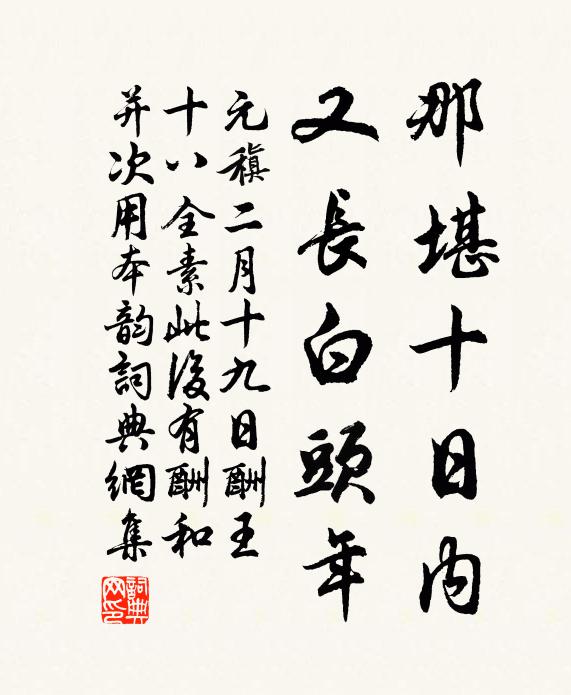 那堪十日内
又長白頭年
元稹二月十九日酬王
十八全素此後有酬和
并次用本韵詞典網集
詞典網印